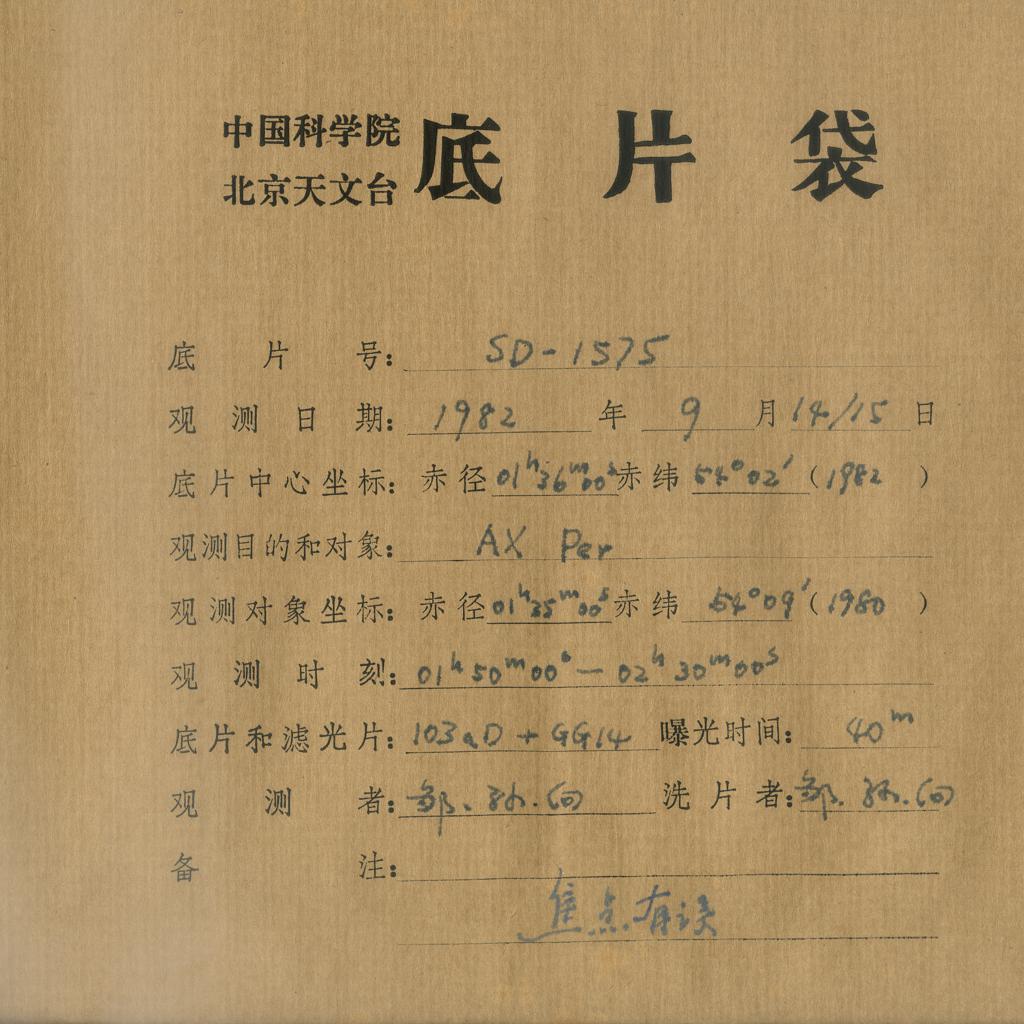 中国科学院
北京天文台
底片袋
底片号: SD-1575
观测日期: 1982年9月14/15日
底片中心坐标: 赤径 01h36m00s 赤纬 54°02′ (1982)
观测目的和对象: AX Per
观测对象坐标: 赤径 01h35m00s 赤纬 54°09′ (1980)
观测时刻: 01h50m00s — 02h30m00s
底片和滤光片: 103aD + GG14 曝光时间: 40m
观测者: 邹、孙.向 洗片者: 邹.孙.向
备注:
焦点有误